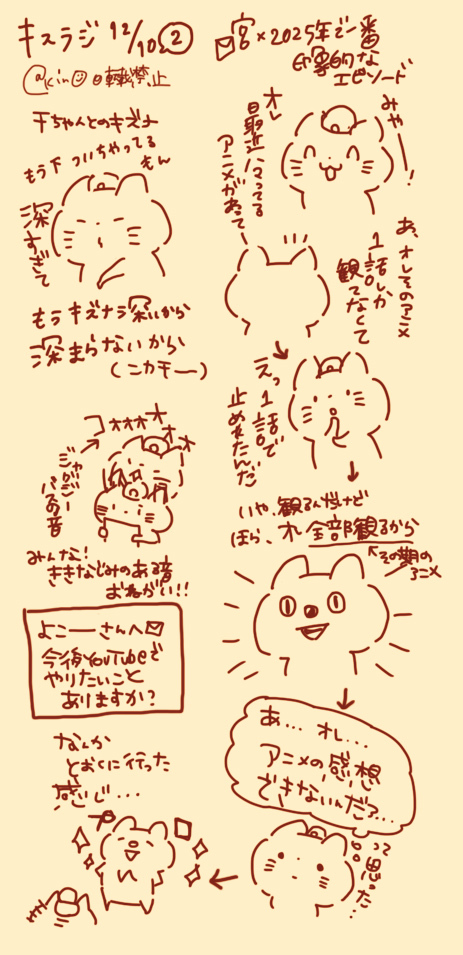 キスラジ 12/10 ②
@kin 転載禁止
千ちゃんとのキズナ
もう下ついちゃってる
もん
深すぎて
もうキズナう深いから
深まらないから
(ニカモー)
コォォォオオオ
ジャグジー
バスの音
みんな!
ききなじみのある音
おねがい!!
よこーーさんへ✉
今後YouTubeで
やりたいこと
ありますか?
✉宮×2025年で一番
印象的な
エピソード
みやーー!
オレ
最近ハマってる
アニメがあって
あ、オレそのアニメ
1話しか
観てなくて
えっ
1話で
止めれたんだ
いや、観るんだけど
ほら、オレ全部観るから
その期の
アニメ
あ... オレ...
アニメの感想
できないんだァ...
って思った...
なんか
とおくに行った
感じ...